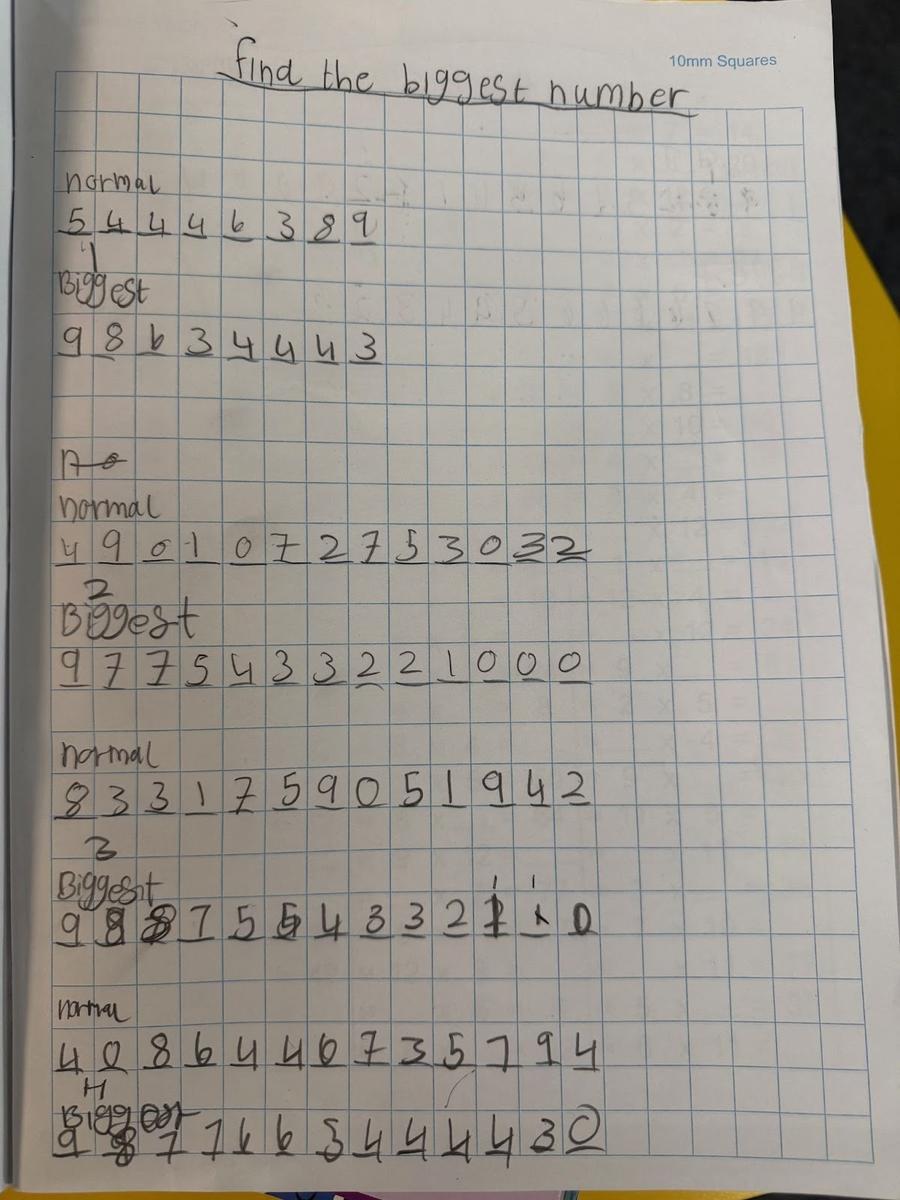 find the biggest number
10mm Squares
normal
5 4 4 4 6 3 8 9
1
Biggest
9 8 6 3 4 4 4 3
normal
4 9 0 1 0 7 2 7 5 3 0 3 2
2
Biggest
9 7 7 5 4 3 3 2 2 1 0 0 0
normal
8 3 3 1 7 5 9 0 5 1 9 4 2
3
Biggest
9 9 8 7 5 5 4 3 3 2 1 1 0
normal
4 0 8 6 4 4 6 7 3 5 7 9 4
4
Biggest
9 8 7 7 6 6 5 4 4 4 4 3 0